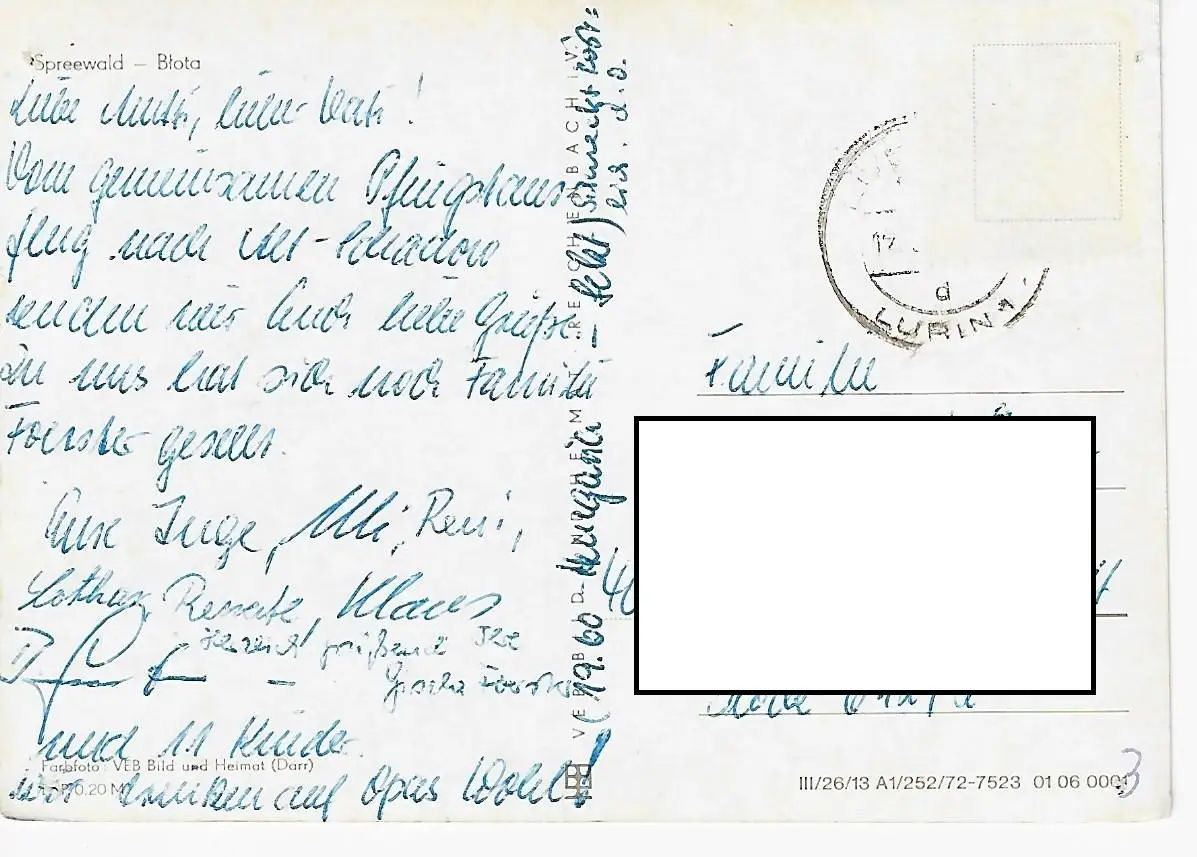 Spreewald – Błota
Liebe Mutti, lieber Vati!
Vom gemeinsamen Pfingstaus-
flug nach Alt-Schadow
senden wir Euch liebe Grüße.
Zu uns hat sich noch Familie
Foerster gesellt.
Eure Inge, Ulli, Reni,
Lothar, Renate, Klaus
Herzlich grüßend Ilse
Gisela Foerster
und 11 Kinder.
Farbfoto: VEB Bild und Heimat (Darr)
0,20 M
Wir trinken auf Opas Wohl!
(19.60 M
Sekt) schmeckt köst-
lich. d. O.
VEB BILD UND HEIMAT REICHENBACH i. V.
d
Familie
40
III/26/13 A1/252/72-7523 01 06 000
3